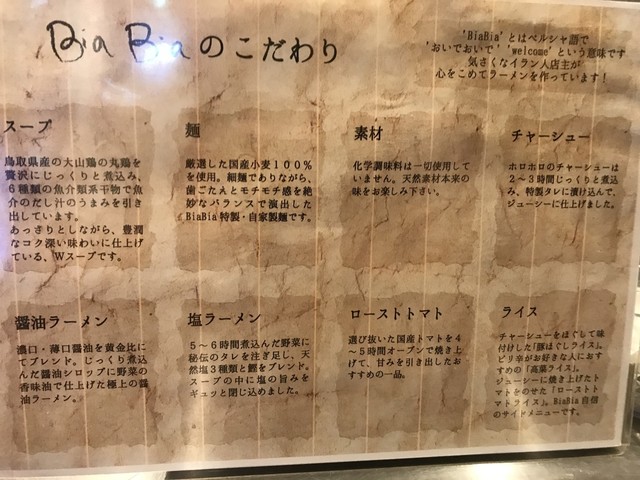 BiaBiaのこだわり
'BiaBia'とはペルシャ語で
'おいでおいで' 'welcome'という意味です
気さくなイラン人店主が
心をこめてラーメンを作っています!
スープ
鳥取県産の大山鶏の丸鶏を
贅沢にじっくりと煮込み、
6種類の魚介類系干物で魚
介のだし汁のうまみを引き
出しています。
あっさりとしながら、豊潤
なコク深い味わいに仕上げ
ている、Wスープです。
麺
厳選した国産小麦100%
を使用。細麺でありながら、
歯ごたえとモチモチ感を絶
妙なバランスで演出した
BiaBia特製・自家製麺です。
素材
化学調味料は一切使用して
いません。天然素材本来の
味をお楽しみ下さい。
チャーシュー
ホロホロのチャーシューは
2~3時間じっくりと煮込
み、特製タレに漬け込んで、
ジューシーに仕上げました。
醤油ラーメン
濃口・薄口醤油を黄金比に
てブレンド。じっくり煮込
んだ醤油シロップに野菜の
香味油で仕上げた極上の醤
油ラーメン。
塩ラーメン
5~6時間煮込んだ野菜に
秘伝のタレを注ぎ足し、天
然塩3種類と鰹をブレンド。
スープの中に塩の旨みを
ギュッと閉じ込めました。
ローストトマト
選び抜いた国産トマトを4
~5時間オーブンで焼き上
げて、甘みを引き出したお
すすめの一品。
ライス
チャーシューをほぐして味
付けした「豚ほぐしライス」。
ピリ辛がお好きな人におす
すめの「高菜ライス」。
ジューシーに焼き上げたト
マトをのせた「ローストト
マトライス」。BiaBia自信
のサイドメニューです。